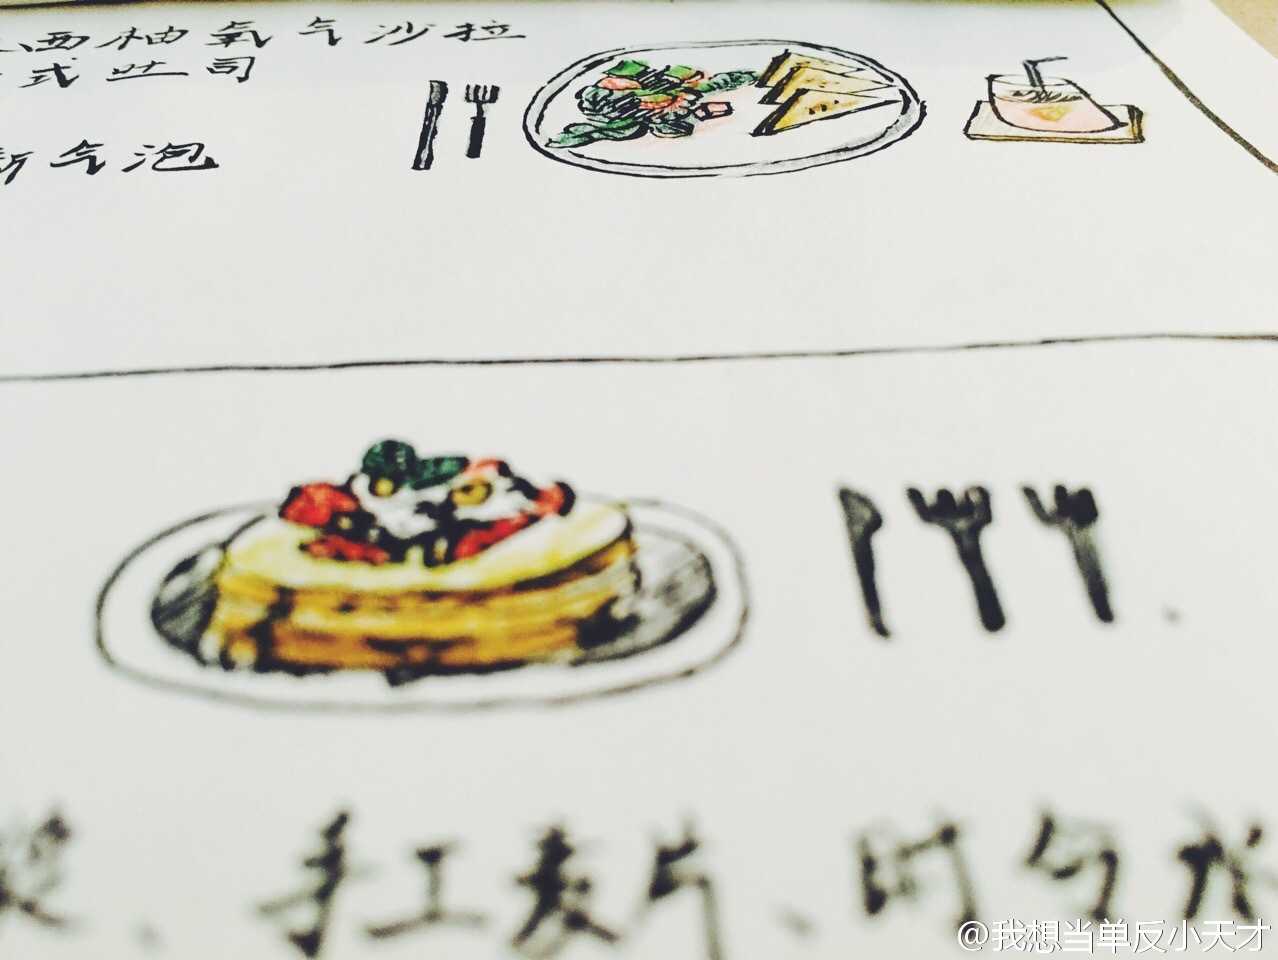 西柚氧气沙拉
式吐司
气泡
手工麦片、时勻水
@我想当单反小天才